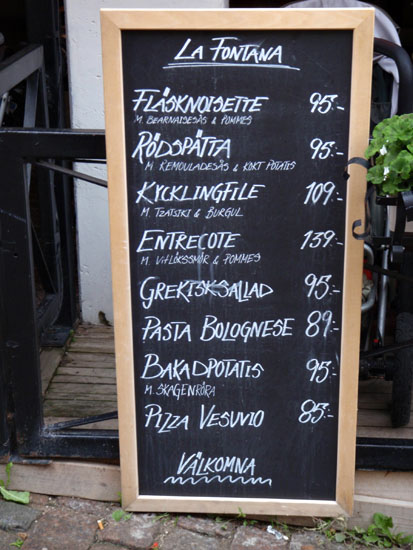 LA FONTANA
FLÄSKNOISETTE 95:-
M. BEARNAISESÅS & POMMES
RÖDSPÄTTA 95:-
M REMOULADESÅS & KORT POTATIS
KYCKLINGFILE 109:-
M. TZATSIKI & BURGUL
ENTRECOTE 139:-
M. VITLÖKSSMÖR & POMMES
GREKISKSALLAD 95:-
PASTA BOLOGNESE 89:-
BAKADPOTATIS 95:-
M. SKAGENRÖRA
PIZZA VESUVIO 85:-
VÄLKOMNA